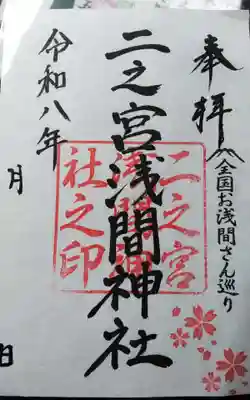 奉拝
全国お浅間さん巡り
二之宮浅間神社
二之宮
浅間神
社之印
令和八年
月
日